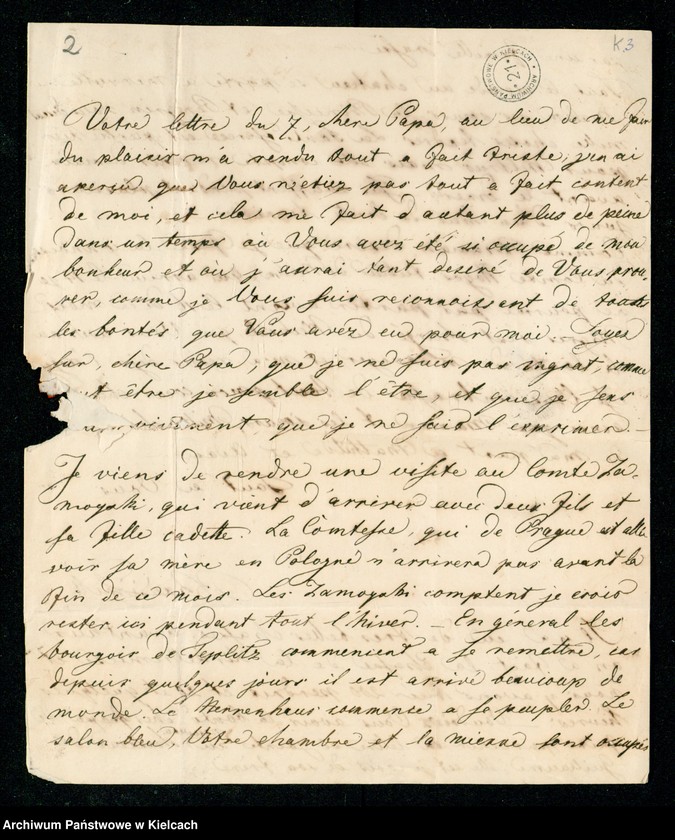 2
K3
ARCHIWUM PAŃSTWOWE W KIELCACH
21
Votre lettre du 7, chere Papa, au lieu de me faire
du plaisir m'a rendu tout a fait triste, j'en ai
aperçu que Vous n'étiez pas tout a fait content
de moi, et cela me fait d'autant plus de peine
dans un temps où Vous avez été si occupé de mon
bonheur et où j'aurai tant desiré de Vous prou-
ver, comme je Vous suis reconnoissent de toutes
les bontés que Vous avez eu pour moi. Soyez
sur, chere Papa, que je ne suis pas ingrat, comme
t être je semble l'être, et que je sens
vivement que je ne sais l'exprimer. –
Je viens de rendre une visite au Comte Za-
moyski, qui vient d'arriver avec deux fils et
sa fille cadette. La Comtesse, qui de Prague est allé
voir sa mère en Pologne n'arrivera pas avant la
fin de ce mois. Les Zamoyski comptent je crois
rester ici pendant tout l'hiver. – En general les
bourgois de Teplitz commencent a se remettre, car
depuis quelques jours il est arrivé beaucoup de
monde. Le Herrenhaus commence a se peupler. Le
salon bleu, Votre chambre et la mienne sont occupés
Archiwum Państwowe w Kielcach